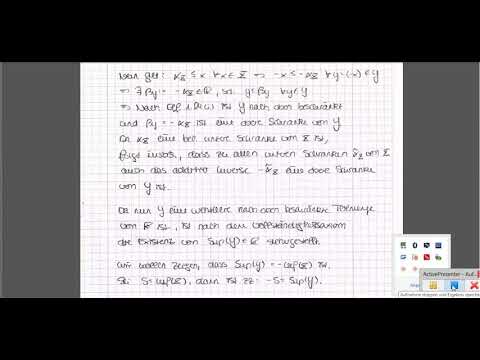 κ_X ≤ x ∀ x ∈ X ⇒ -x ≤ -κ_X ∀ y=(-x) ∈ Y
⇒ ∃ β_Y = -κ_X ∈ ℝ, y ≤ β_Y ∀ y ∈ Y
⇒ Nach Def 1 ist Y nach oben beschränkt
und β_Y = -κ_X ist eine obere Schranke von Y
Da κ_X eine bel. untere Schranke von X ist,
folgt insb., dass zu allen unteren Schranken κ̃_X von X
auch das additive Inverse -κ̃_X eine obere Schranke
von Y ist.
Da nun Y eine nach oben beschränkte Teilmenge
von ℝ ist, ist nach dem Vollständigkeitsaxiom
die Existenz von Sup(Y) ∈ ℝ sichergestellt.
Wir wollen zeigen, dass Sup(Y) = -inf(X) ist.
Sei S = inf(X), dann ist zz: -S = Sup(Y).
ActivePresenter - Auf...
Aufnahme stoppen und Ergebnis speichern